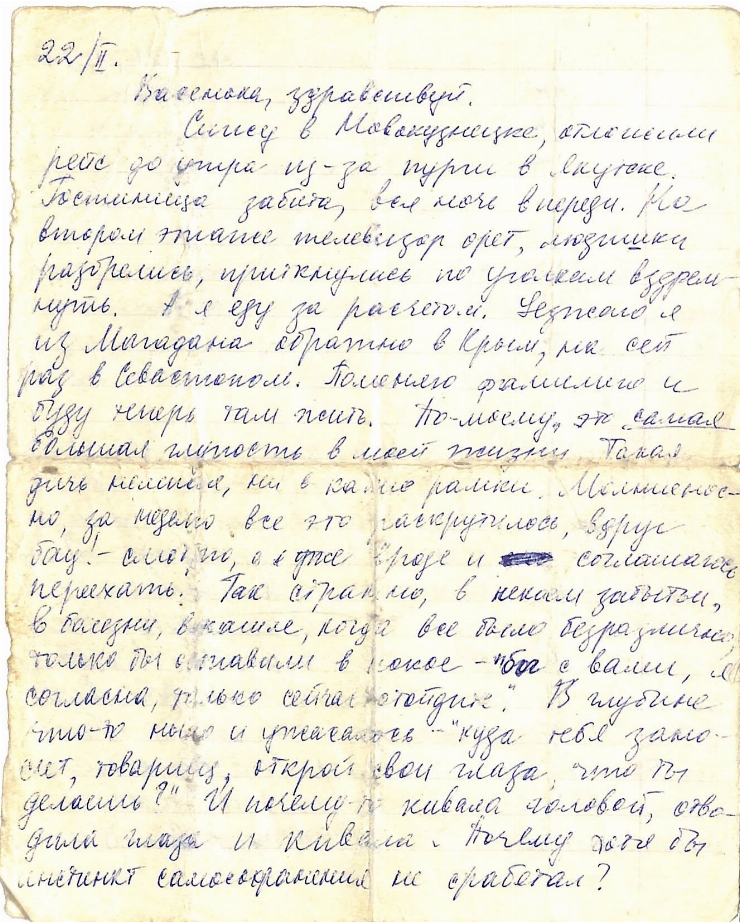 22/II.
Васенька, здравствуй.
Сижу в Новокузнецке, отложили
рейс до утра из-за пурги в Якутске.
Гостиница забита, вся ночь впереди. На
втором этаже телевизор орет, людишки
разбрелись, приткнулись по уголкам вздрем-
нуть. А я еду за расчетом. Уезжала я
из Магадана обратно в Крым, на сей
раз в Севастополь. Поменяю фамилию и
буду теперь там жить. По-моему, это самая
большая глупость в моей жизни. Такая
дичь нелепая, ни в какие рамки. Молниенос-
но, за неделю все это раскрутилось, вдруг
бац! - смотрю, а я уже вроде и соглашаюсь
переехать. Так странно, в неком забытьи,
в болезни, в кашле, когда все было безразлично,
только бы оставили в покое - "бог с вами, я
согласна, только сейчас отойдите". В глубине
что-то ныло и ужасалось - "куда тебя зано-
сит, товарищ, открой свои глаза, что ты
делаешь?" И почему-то кивала головой, отво-
дила глаза и кивала. Почему хотя бы
инстинкт самосохранения не сработал?